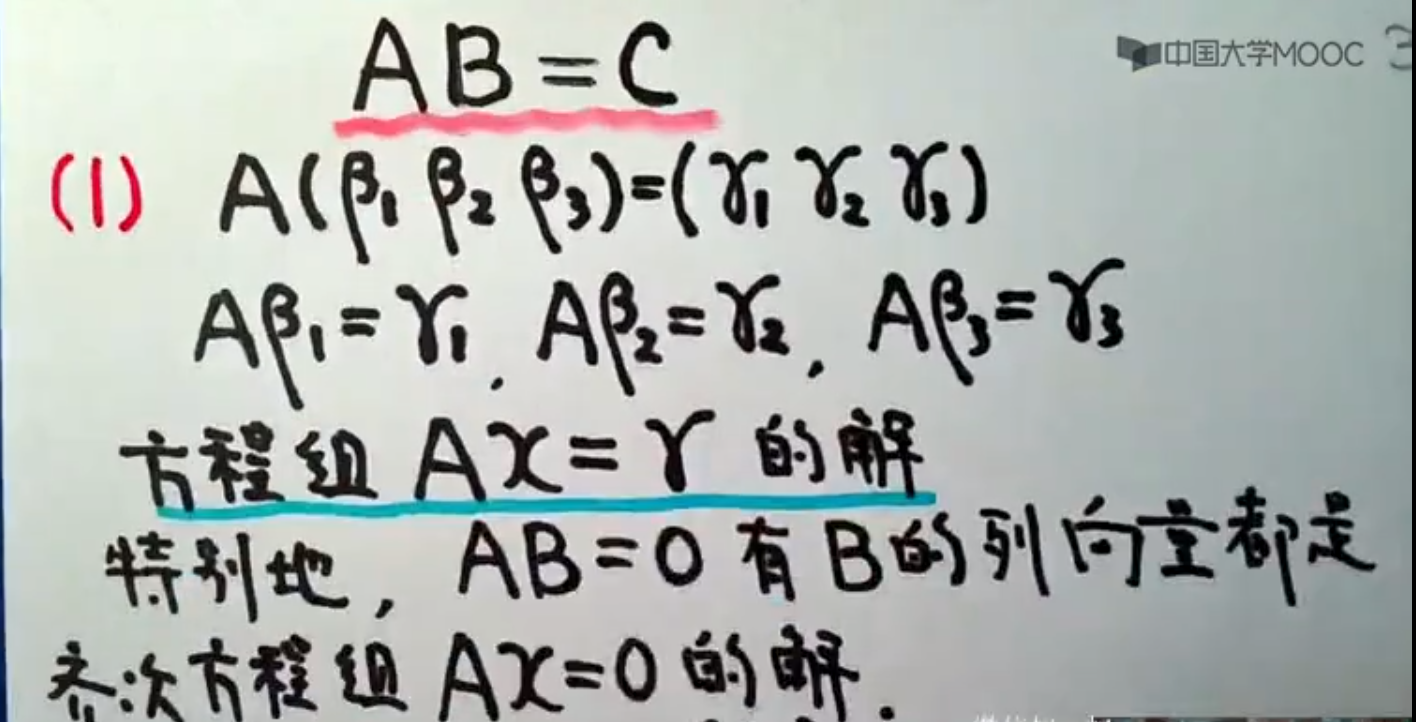 AB=C
中国大学MOOC 3
(1) A(β₁ β₂ β₃)=(γ₁ γ₂ γ₃)
Aβ₁=γ₁, Aβ₂=γ₂, Aβ₃=γ₃
方程组 Ax=γ 的解
特别地, AB=0 有 B的列向量都是
齐次方程组 Ax=0 的解.